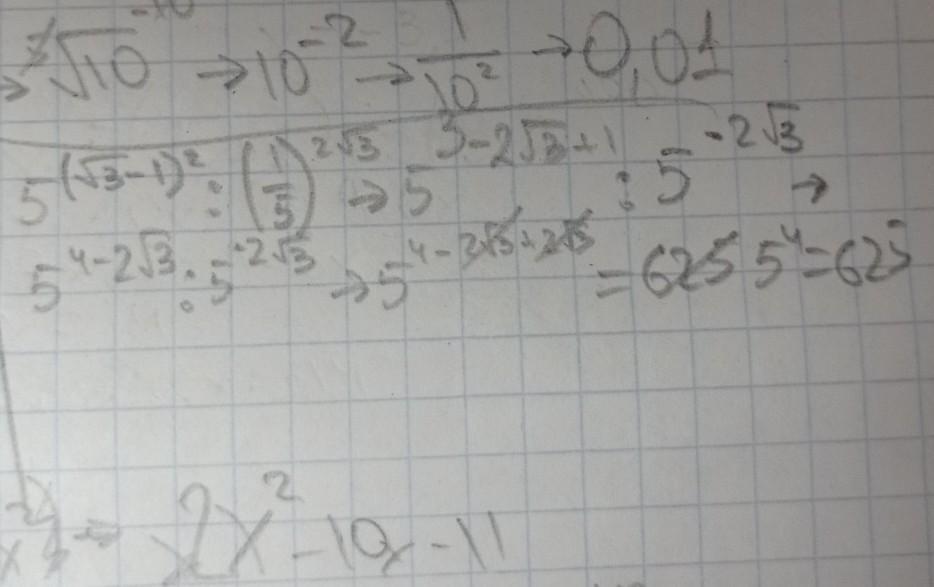 → √10 → 10⁻² → 1/10² → 0,01
5^(√3-1)² : (1/5)^2√3 → 5^3-2√3+1 : 5^-2√3 →
5^4-2√3 : 5^-2√3 → 5^4-2√3+2√3 = 625 5⁴=625
2x² - 10x - 11